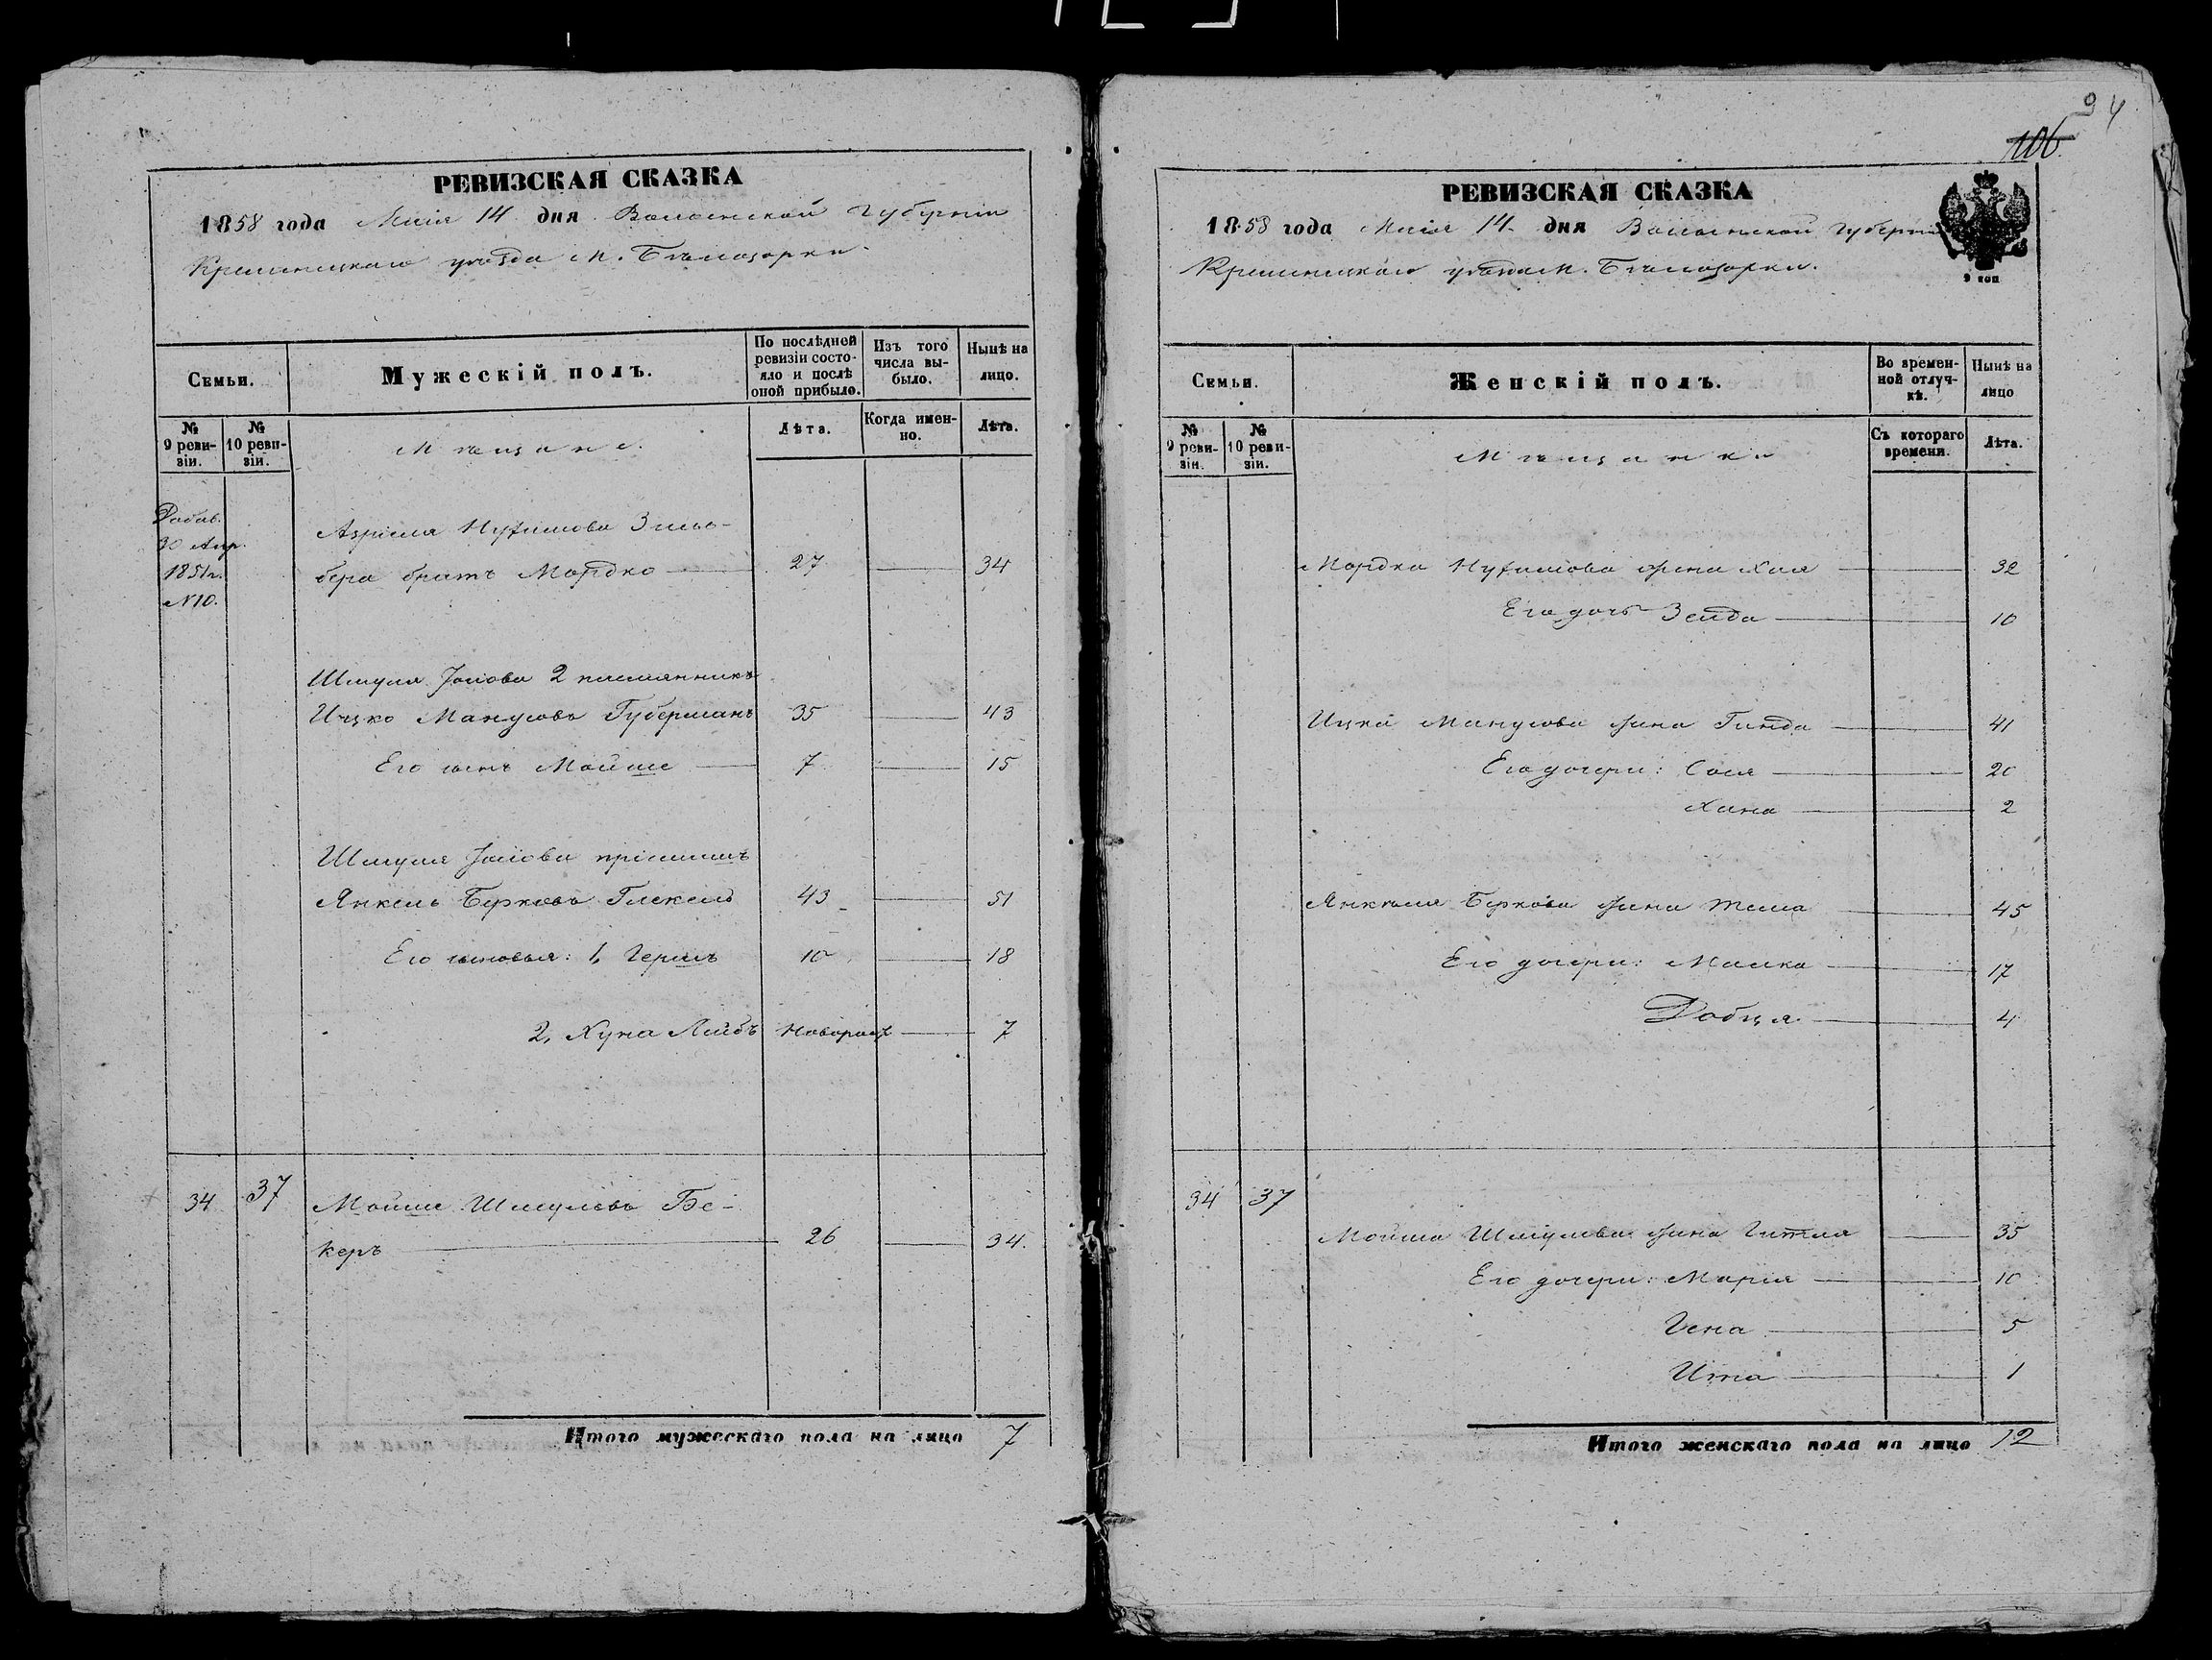 РЕВИЗСКАЯ СКАЗКА
1858 года Маія 14 дня Волынской губерніи
Кременецкаго уѣзда м. Бѣлозорки
Семьи.
Мужескій полъ.
По послѣдней ревизіи состояло и послѣ оной прибыло.
Изъ того числа выбыло.
Нынѣ на лицо.
№ 9 ревизіи.
№ 10 ревизіи.
Мѣщане.
Лѣта.
Когда именно.
Лѣта.
Добав.
30 Апр.
1851 г.
№ 10.
Азріеля Нухимова Зиль-
бера братъ Мордко 27 34
Шмуля Іосіова 2 племянникъ
Ицко Манусовъ Губерманъ 35 43
Его сынъ Мойше 7 15
Шмуля Іосіова пріемышъ
Янкель Берковъ 43 51
Его сыновья: 1, Гершъ 10 18
2, Хуна Лейбъ Новорож 7
34 37 Мойше Шмулевъ Бе-
керъ 26 34.
Итого мужескаго пола на лицо 7
94
106.
РЕВИЗСКАЯ СКАЗКА
1858 года Маія 14 дня Волынской губерніи
Кременецкаго уѣзда м. Бѣлозорки.
Семьи.
Женскій полъ.
Во временной отлучкѣ.
Нынѣ на лицо
№ 9 ревизіи.
№ 10 ревизіи.
Мѣщанки
Съ котораго времени.
Лѣта.
Мордка Нухимова жена Хая 32
Его дочь Зелда 10
Ицка Манусова жена Гинда 41
Его дочери: Сося 20
Хана 2
Янкеля Беркова жена 45
Его дочери: Малка 17
Добця 4
34 37
Мойша Шмулева жена Гитля 35
Его дочери: Марія 10
Гена 5
Ита 1
Итого женскаго пола на лицо 12